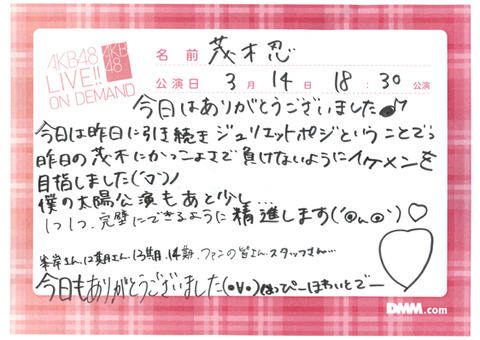 AKB48
LIVE!!
ON DEMAND
AKB
48
名前 茂木忍
公演日 3月14日 18:30公演
今日はありがとうございました♪
今日は昨日に引き続きジュリエットポジということで、
昨日の茂木にかっこよさで負けないようにイケメンを
目指しました
僕の太陽公演もあと少し…
1つ1つ、完璧にできるように精進します ♡
峯岸さん、12期さん、13期、14期、ファンの皆さん、スタッフさん…
今日もありがとうございました(•V•)はっぴーほわいとでー
DMM.com